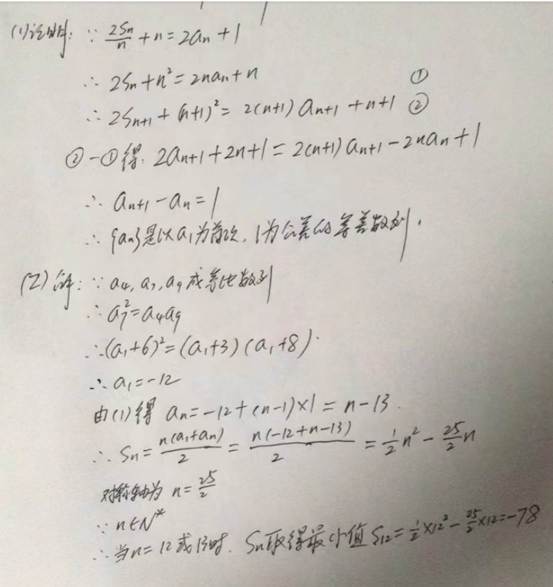 (1)证明: ∵ 2Sn/n + n = 2an + 1
∴ 2Sn + n² = 2nan + n ①
∴ 2Sn+1 + (n+1)² = 2(n+1) an+1 + n+1 ②
②-①得: 2an+1 + 2n+1 = 2(n+1) an+1 - 2nan + 1
∴ an+1 - an = 1
∴ {an}是以a1为首项, 1为公差的等差数列.
(2)解: ∵ a4, a7, a9成等比数列
∴ a7² = a4a9
∴ (a1+6)² = (a1+3)(a1+8).
∴ a1 = -12
由(1)得 an = -12 + (n-1)×1 = n-13.
∴ Sn = n(a1+an)/2 = n(-12+n-13)/2 = 1/2 n² - 25/2 n
对称轴为 n = 25/2
∵ n∈N*
∴ 当n=12或13时, Sn取得最小值 S12 = 1/2×12² - 25/2×12 = -78